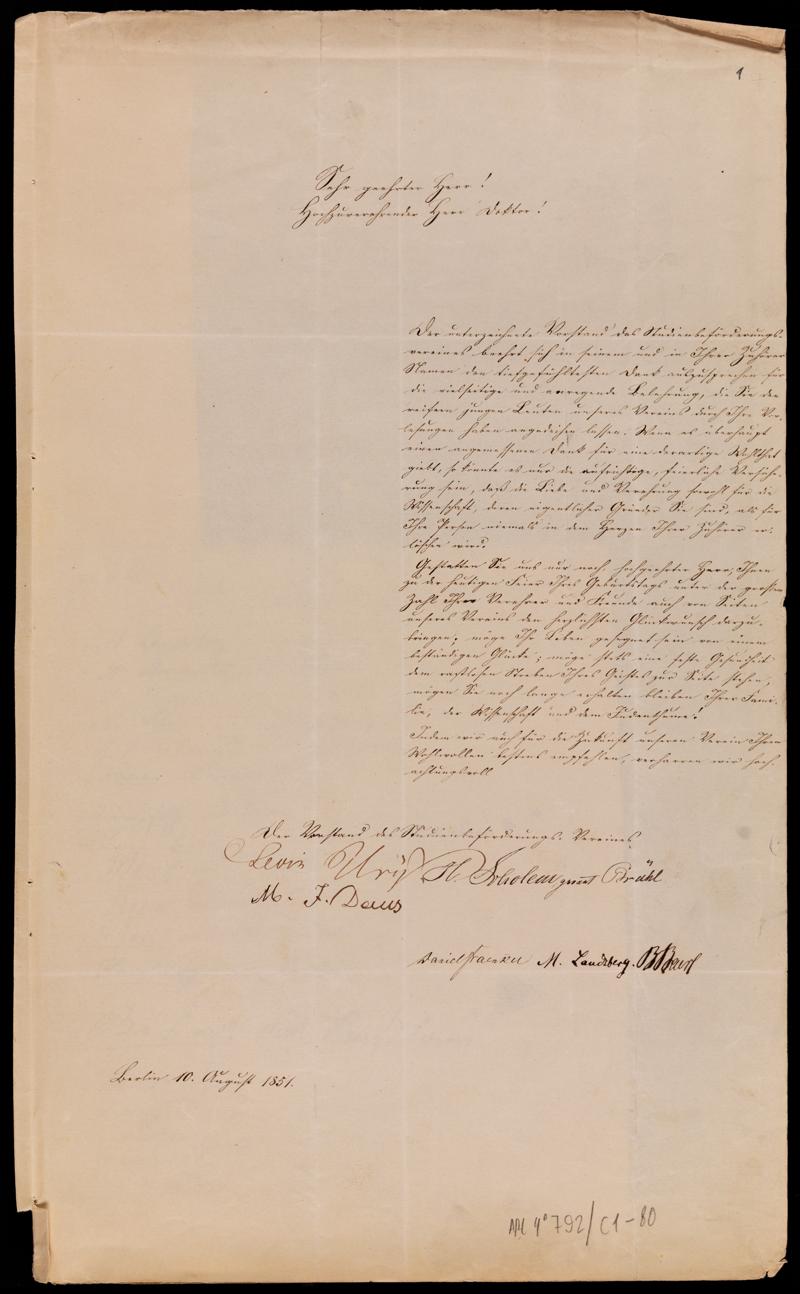 1
Sehr geehrter Herr!
Hochzuverehrender Herr Doktor!
Der unterzeichnete Vorstand des Studienbeförderungs-
vereines beehrt sich in seinem und in Ihrer Zuhörer
Namen den tiefgefühltesten Dank auszusprechen für
die vielseitige und anregende Belehrung, die Sie den
reifern jungen Leuten unseres Vereins durch Ihre Vor-
lesungen haben angedeihen lassen. Wenn es überhaupt
einen angemessenen Dank für eine derartige Wohlthat
giebt, so könnte es nur die aufrichtige, feierliche Versiche-
rung sein, daß die Liebe und Verehrung sowohl für die
Wissenschaft, deren eigentlicher Gründer Sie sind, als für
Ihre Person niemals in dem Herzen Ihrer Zuhörer er-
löschen wird.
Gestatten Sie uns nur noch, hochgeehrter Herr, Ihnen
zu der heutigen Feier Ihres Geburtstags unter der grossen
Zahl Ihrer Verehrer und Freunde auch von Seiten
unseres Vereins den herzlichsten Glückwunsch darzu-
bringen; möge Ihr Leben gesegnet sein von einem
beständigen Glücke; möge stets eine feste Gesundheit
dem rastlosen Streben Ihres Geistes zur Seite stehen,
mögen Sie noch lange erhalten bleiben Ihrer Fami-
lie, der Wissenschaft und dem Judenthume!
Indem wir auch für die Zukunft unseren Verein Ihrem
Wohlwollen bestens empfehlen, verharren wir hoch-
achtungsvoll
Der Vorstand des Studienbeförderungs-Vereines
Levin Ury H. Scholem Brühl
M. J. Daus
Daniel Fraenkel M. Landsberg.
Berlin 10. August 1851.
792/C1-80